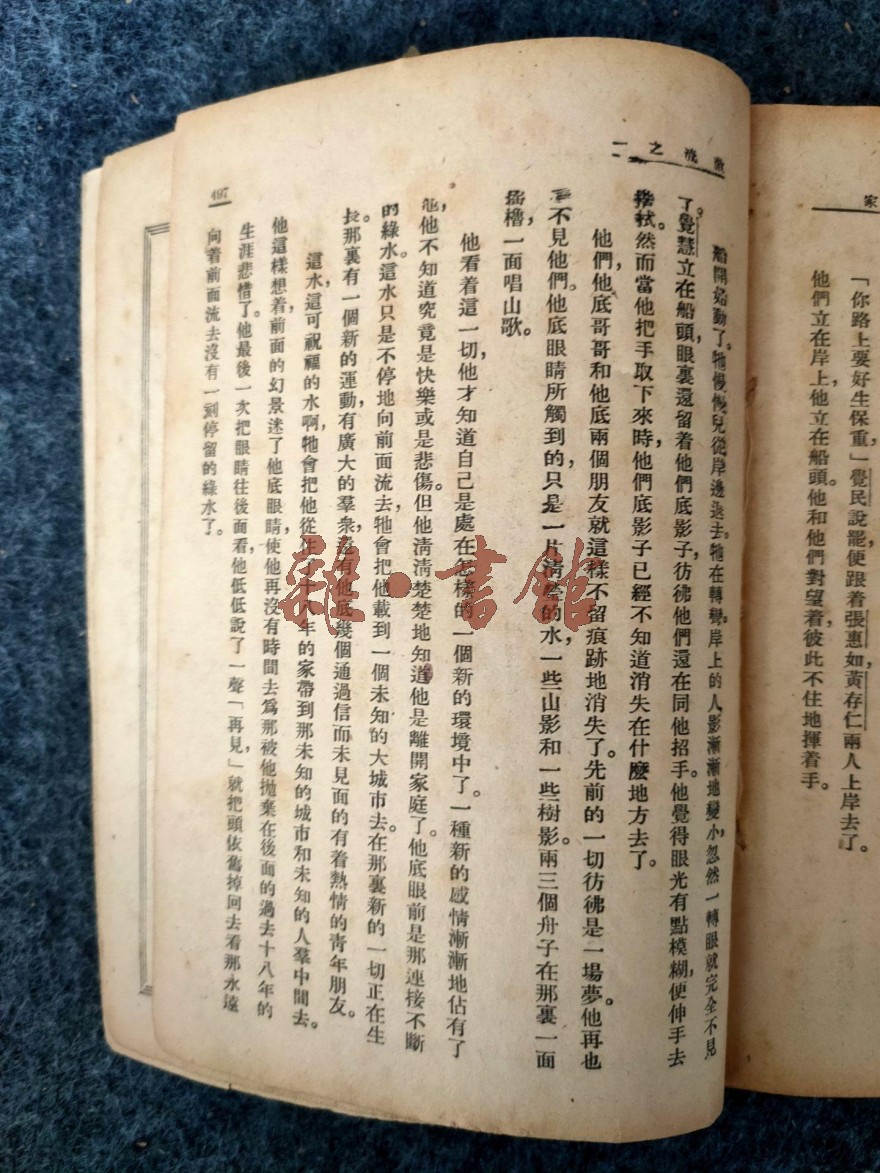 家
「你路上要好生保重，」覺民說罷，便跟着張惠如，黃存仁兩人上岸去了。
他們立在岸上，他立在船頭。他和他們對望着，彼此不住地揮着手。
激流之一
船開始動了。牠慢慢兒從岸邊退去。牠在轉彎。岸上的人影漸漸地變小，忽然一轉眼就完全不見
了。覺慧立在船頭，眼裏還留着他們底影子，彷彿他們還在同他招手。他覺得眼光有點模糊，便伸手去
揩拭。然而當他把手取下來時，他們底影子已經不知道消失在什麽地方去了。
他們，他底哥哥和他底兩個朋友就這樣不留痕跡地消失了。先前的一切彷彿是一場夢。他再也
看不見他們。他底眼睛所觸到的，只是一片清瑩的水，一些山影和一些樹影。兩三個舟子在那裏一面
搖櫓，一面唱山歌。
他看着這一切，他才知道自己是處在怎樣的一個新的環境中了。一種新的感情漸漸地佔有了
他，他不知道究竟是快樂或是悲傷。但他清清楚楚地知道他是離開家庭了。他底眼前是那連接不斷
的綠水。這水只是不停地向前面流去，牠會把他載到一個未知的大城市去。在那裏新的一切正在生
長。那裏有一個新的運動，有廣大的羣衆，還有他底幾個通過信而未見面的有着熱情的青年朋友。
這水，這可祝福的水啊，牠會把他從住了十八年的家帶到那未知的城市和未知的人羣中間去。
他這樣想着，前面的幻景迷了他底眼睛，使他再沒有時間去爲那被他拋棄在後面的過去十八年的
生涯悲惜了。他最後一次把眼睛往後面看，他低低說了一聲「再見，」就把頭依舊掉回去看那永遠
向着前面流去沒有一刻停留的綠水了。
497
雜·書館